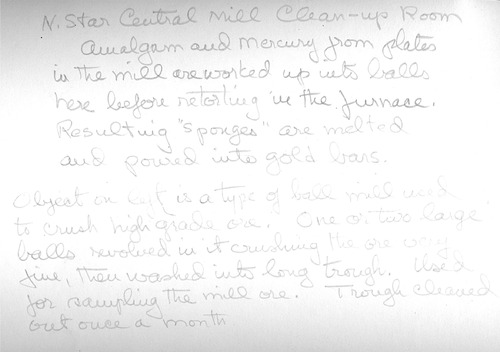 N. Star Central Mill Clean-up Room
Amalgam and mercury from plates
in the mill are worked up into balls
here before retorting in the furnace.
Resulting "sponges" are melted
and poured into gold bars.
Object on left is a type of ball mill used
to crush high grade ore. One or two large
balls revolved in it crushing the ore very
fine, then washed into long trough. Used
for sampling the mill ore. Trough cleaned
out once a month